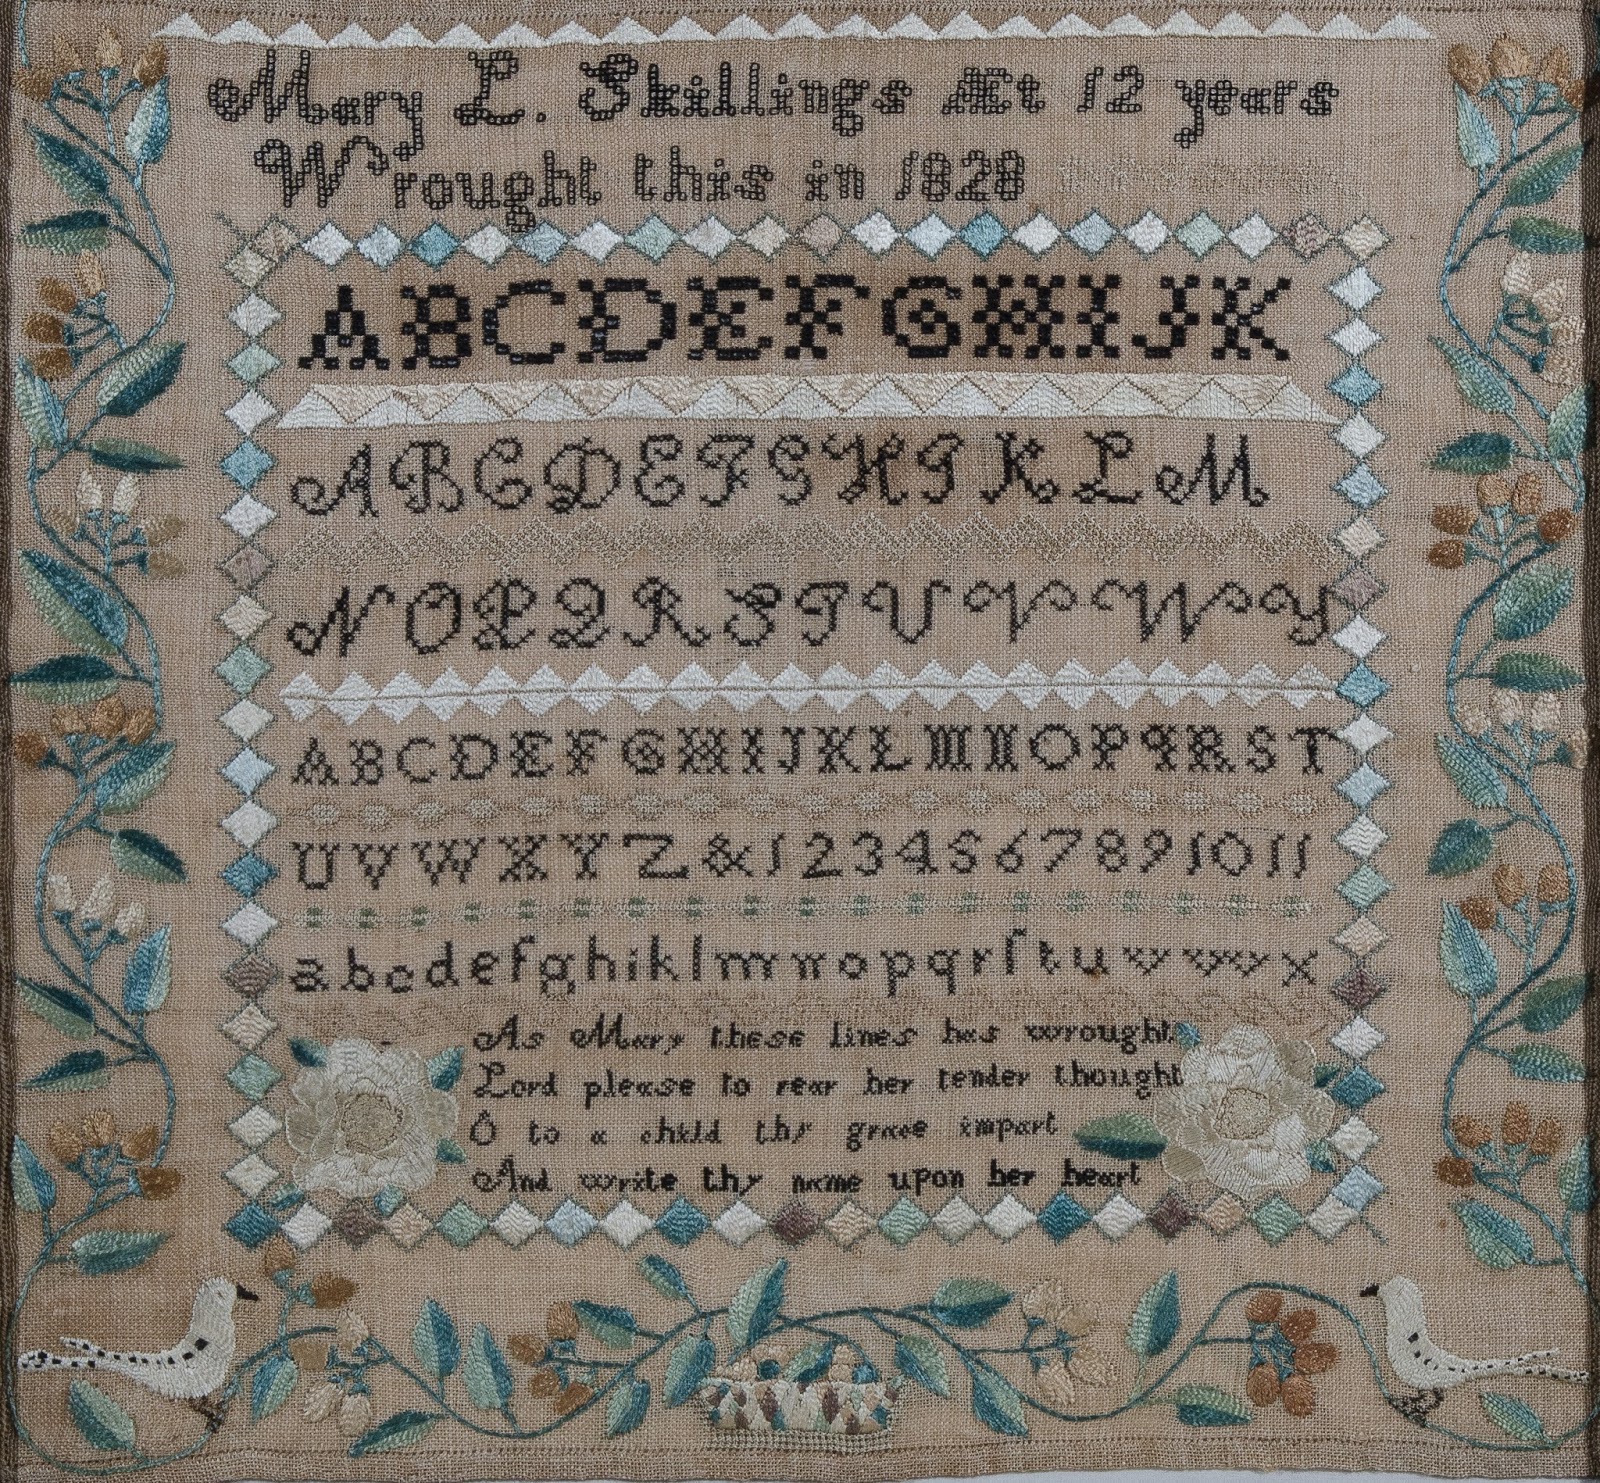 Mary L. Skillings Æt 12 years
Wrought this in 1828
ABCDEFGHIJK
ABCDEFGHIKLM
NOPQRSTUVWY
ABCDEFGHIJKLMNOPQRST
UVWXYZ&1234567891011
abcdefghiklmnopqrſtuvwx
As Mary these lines has wrought
Lord please to rear her tender thought
O to a child thy grace impart
And write thy name upon her heart